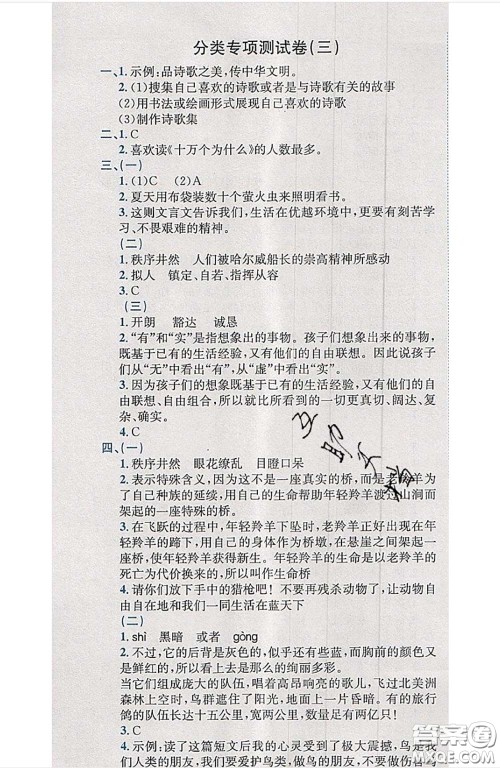 分类专项测试卷(三)
一、1. 示例:品诗歌之美,传中华文明。
2. (1)搜集自己喜欢的诗歌或者是与诗歌有关的故事
(2)用书法或绘画形式展现自己喜欢的诗歌
(3)制作诗歌集
二、1. C
2. 喜欢读《十万个为什么》的人数最多。
三、(一)
1. (1)C (2)A
2. 夏天用布袋装数十个萤火虫来照明看书。
3. 这则文言文告诉我们,生活在优越环境中,更要有刻苦学
习、不畏艰难的精神。
(二)
1. 秩序井然 人们被哈尔威船长的崇高精神所感动
2. 拟人 镇定、自若、指挥从容
3. C
(三)
1. 开朗 豁达 诚恳
2. “有”和“实”是指想象出的事物。孩子们想象出来的事物,
既基于已有的生活经验,又有他们的自由联想。因此说孩子
们从“无”中看出“有”,从“虚”中看出“实”。
3. 因为孩子们的想象既基于已有的生活经验,又有他们的
自由联想,自由组合,所以就比所看到的一切更真、阔达、复
杂、确实。
4. C
四、(一)
1. 秩序井然 眼花缭乱 目瞪口呆
2. 表示特殊含义,因为这不是一座真实的桥,而是老羚羊为
了自己种族的延续,用自己的生命帮助年轻羚羊渡过山涧而
架起的一座特殊的桥。
3. 在飞跃的过程中,年轻羚羊下坠时,老羚羊正好出现在年
轻羚羊蹄下,用自己的身体作为桥墩,在悬崖之间架起一座
桥,使年轻羚羊获得新生。年轻羚羊的飞渡是以老羚羊的死
亡为代价换来的,所以叫作生命桥
4. 请你们放下手中的猎枪吧!不要再残杀动物了,让动物自
由自在地和我们一同生活在蓝天下
(二)
1. shǐ 黑暗 或者 gòng
2. 不过,它的后背是灰色的,似乎还有些蓝,而胸前的颜色又
是鲜红的,所以看上去是那么的绚丽多彩。
当它们组成庞大的队伍,唱着高昂响亮的歌儿,飞过北美洲
森林上空时,就会遮住阳光,地面上一片昏暗。有的旅行
鸽的队伍长达十五公里,宽两公里,数量足有两亿只!
3. C
4. 示例:读了这篇短文后我的心灵受到了极大震撼,鸟是我
们人类的朋友,我们要爱护鸟类,
答案圈
MXQE.COM